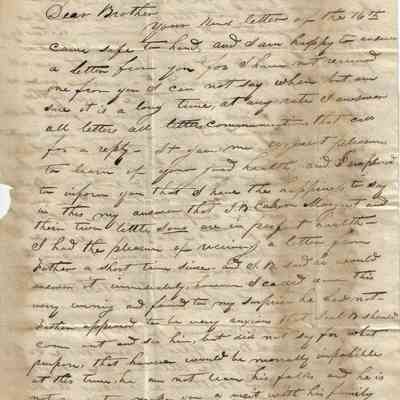 Dear Brother
Your kind letter of the 16th
came safe to hand, and I am happy to answer
a letter from you for I have not received
one from you I can not say when but am
sure it is a long time, at any rate I answer
all letters all letter communicants that call
for a reply. It gave me great pleasure
to learn of your good health, and I
to inform you that I have the happiness to say
in this my answer that J.B. Margaret and
their two little sons are in perfect health
I had the pleasure of receiving a letter from
Father a short time since and J.B. said he would
answer it immediately, however I called on this
very evening and found to my surprise he had not
Father appeared to be very anxious that J.B. should
come out and see him, but did not say for what
purpose, that however would be morally impossible
at this time, he can not leave his and he is
not make you a visit with his family